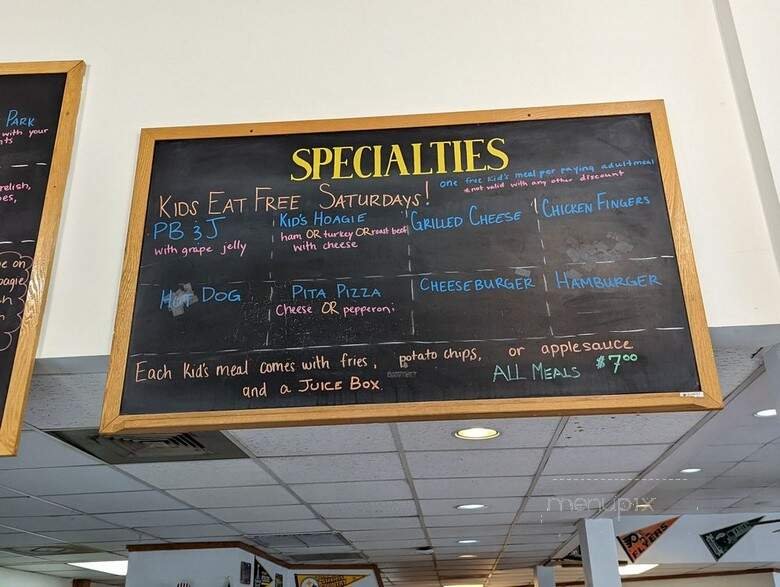 PARK
with your
relish,
SPECIALTIES
KIDS EAT FREE SATURDAYS!
one free kid's meal per paying adult meal
*not valid with any other discount
PB & J
with grape jelly
KID'S HOAGIE
ham OR turkey OR roast beef
with cheese
GRILLED CHEESE
CHICKEN FINGERS
HOT DOG
PITA PIZZA
Cheese OR pepperoni
CHEESEBURGER
HAMBURGER
Each Kid's meal comes with fries, potato chips, or applesauce
and a JUICE BOX
ALL MEALS $7.00
menupix
FLYERS